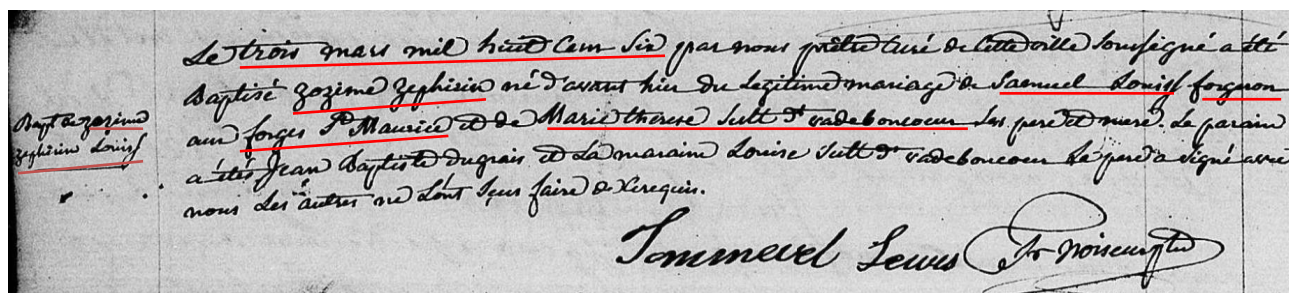 Le trois mars mil huit Cent Six par nous prêtre Curé de Cette ville Soussigné a été
Baptisé zozime zephirin né d'avant hier du Legitime mariage de Samuel Louiss forgeron
Bapt de zozime
aux forges St Maurice et de Marie therese Jutt dt vadeboncoeur Ses pere et mere. Le parain
zephirin Louiss
a étés Jean Baptiste dugrais et La maraine Louise Jutt dt vadeboncoeur Le pere a signé avec
nous Les autres ne L'ont Sçus faire de Ce requis.
Sommevel Lewis fr